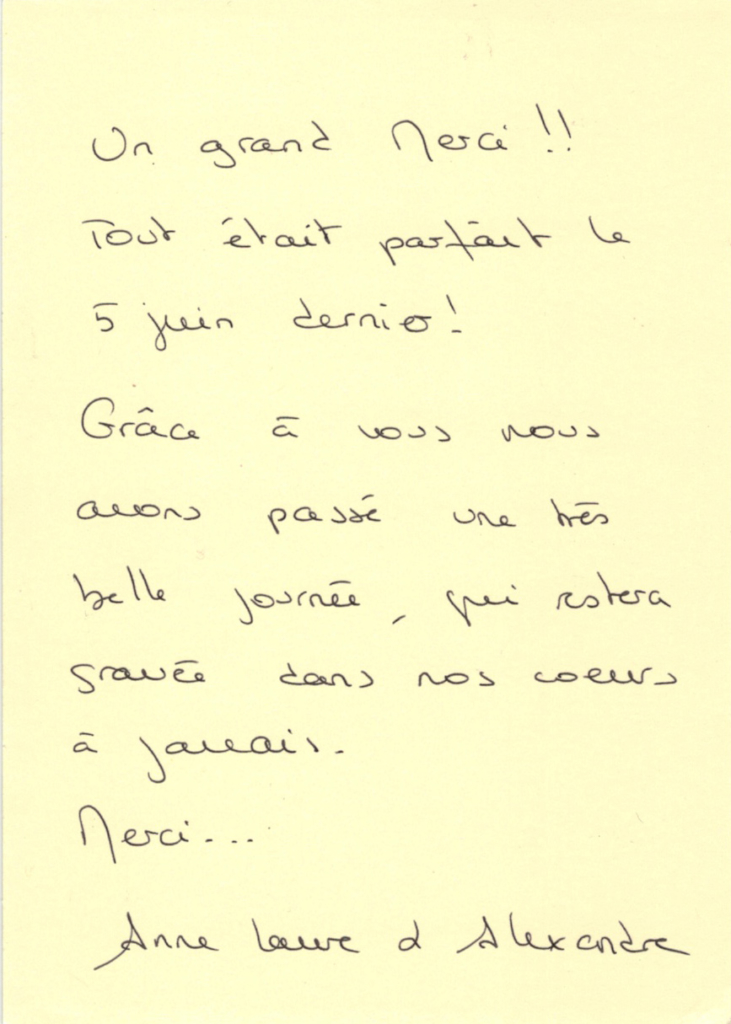 Un grand Merci !!
Tout était parfait le
5 juin dernier !
Grâce à vous nous
avons passé une très
belle journée, qui restera
gravée dans nos coeurs
à jamais.
Merci...
Anne Laure et Alexandre